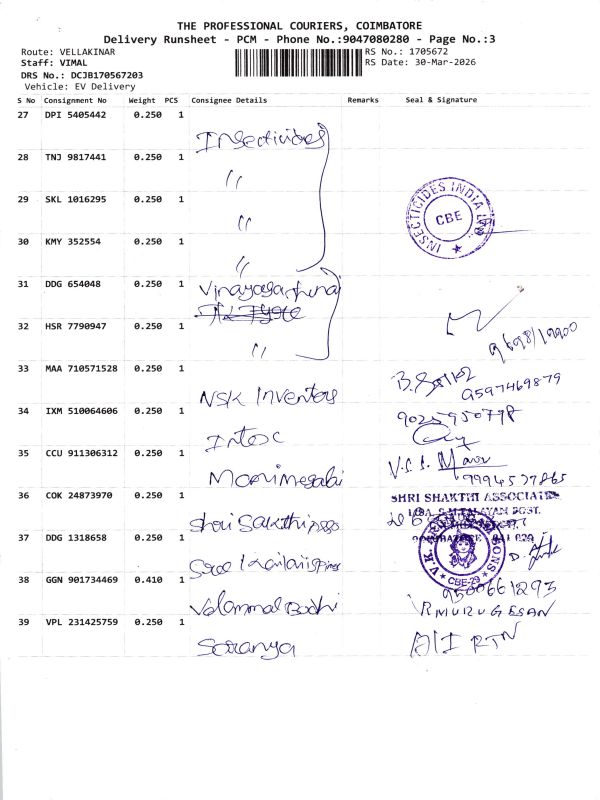 THE PROFESSIONAL COURIERS, COIMBATORE
Delivery Runsheet - PCM - Phone No.:9047080280 - Page No.:3
Route: VELLAKINAR
Staff: VIMAL
DRS No.: DCJB170567203
Vehicle: EV Delivery
RS No.: 1705672
RS Date: 30-Mar-2026
S No Consignment No Weight PCS Consignee Details Remarks Seal & Signature
27 DPI 5405442 0.250 1
Insecticides
28 TNJ 9817441 0.250 1
"
29 SKL 1016295 0.250 1
"
INSECTICIDES INDIA LTD
CBE
30 KMY 352554 0.250 1
"
31 DDG 654048 0.250 1
32 HSR 7790947 0.250 1
"
33 MAA 710571528 0.250 1
NSK Inventors
9597469879
34 IXM 510064606 0.250 1
Intec
9025950798
35 CCU 911306312 0.250 1
Manimegalai
9994527865
36 COK 24873970 0.250 1
SHRI SHAKTHI ASSOCIATES
37 DDG 1318658 0.250 1
CBE-29
38 GGN 901734469 0.410 1
Velammal Bodhi
9500661293
R MURUGESAN
39 VPL 231425759 0.250 1
Saranya
A/I RTN